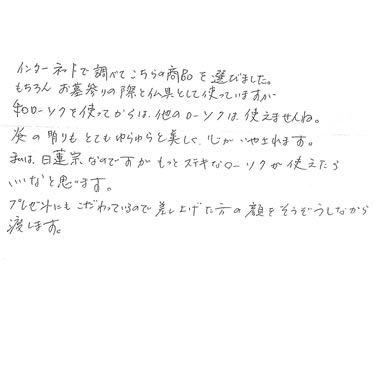 インターネットで調べてこちらの商品を選びました。
もちろんお墓参りの際と仏具として使っていますが
和ローソクを使ってからは、他のローソクは使えませんね。
炎の明りもとてもゆらゆらと美しく、心がいやされます。
私は、日蓮宗なのですがもっとステキなローソクが使えたら
いいなと思います。
プレゼントにもこだわっているので差し上げた方の顔をそうぞうしながら
渡します。